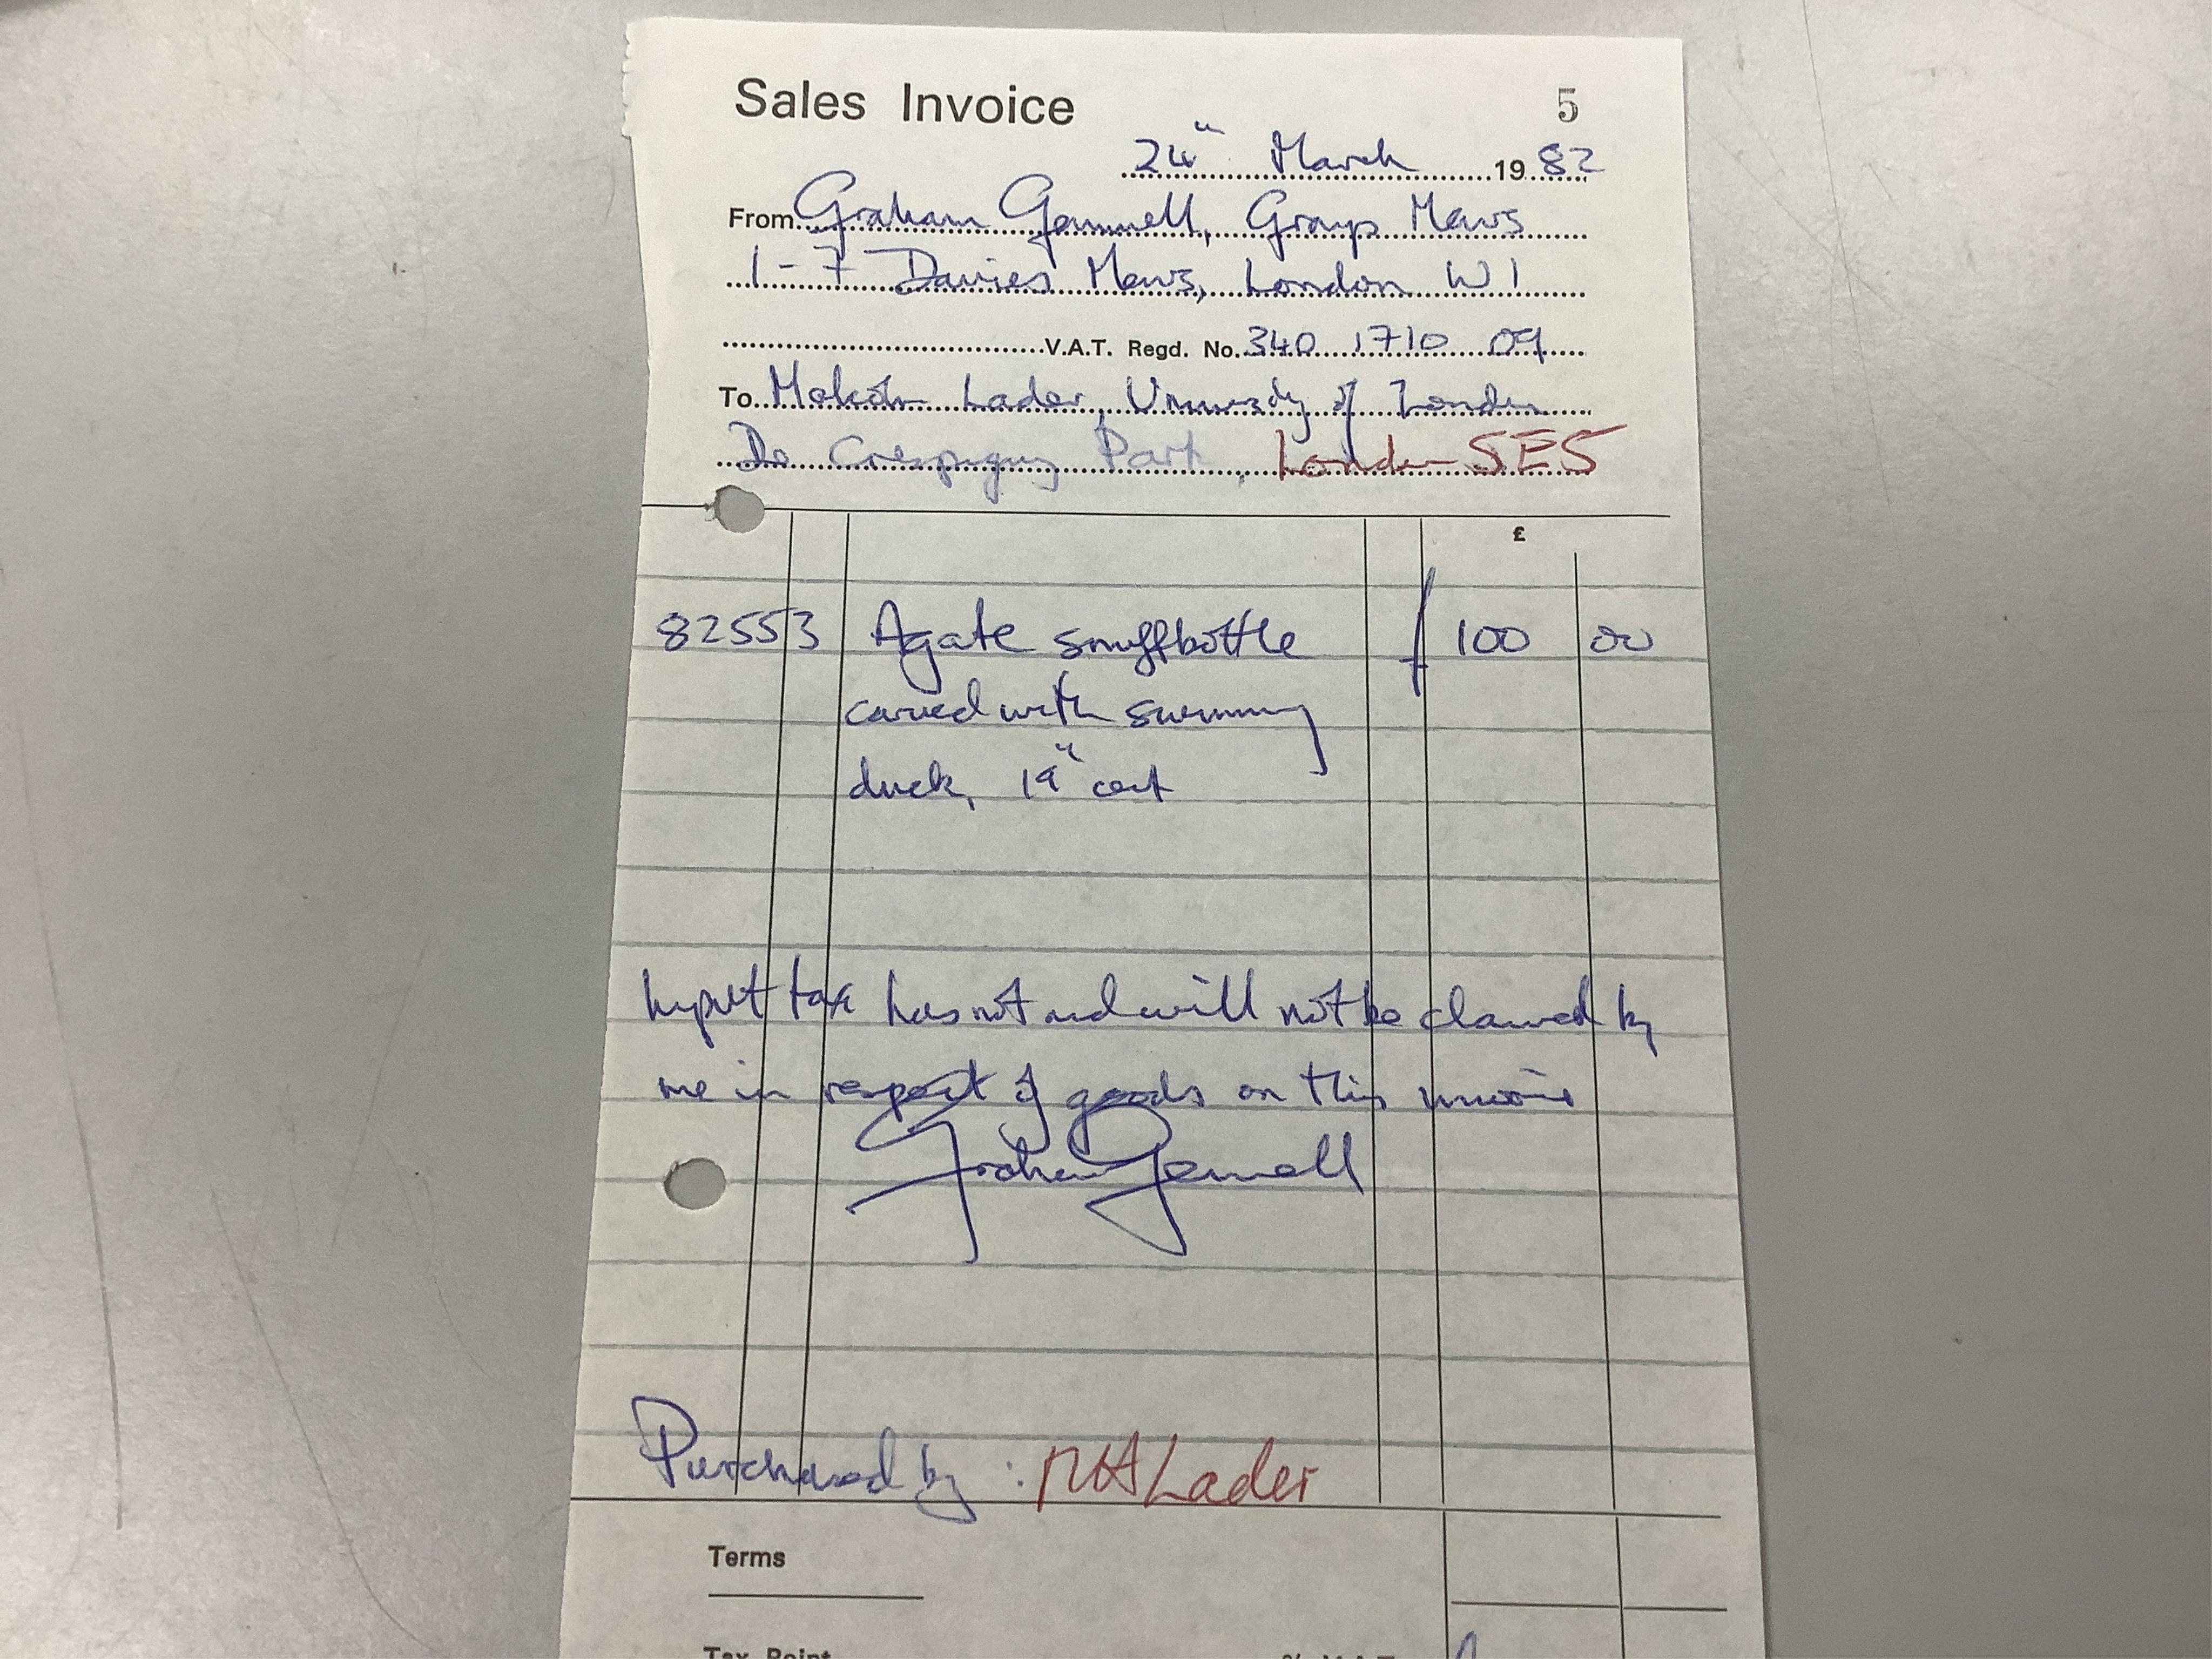 Sales Invoice 5
24th March 1982
From Graham Gemmell, Grays Mews
1-7 Davies Mews, London W1
V.A.T. Regd. No. 340 1710 09
To Malcolm Lader, University of London
De Crespigny Park, London SE5
£
82553 Agate snuffbottle £ 100 00
carved with swimming
duck, 19th cent
Input tax has not and will not be claimed by
me in respect of goods on this invoice
Graham Gemmell
Purchased by: MH Lader
Terms
Tax Point